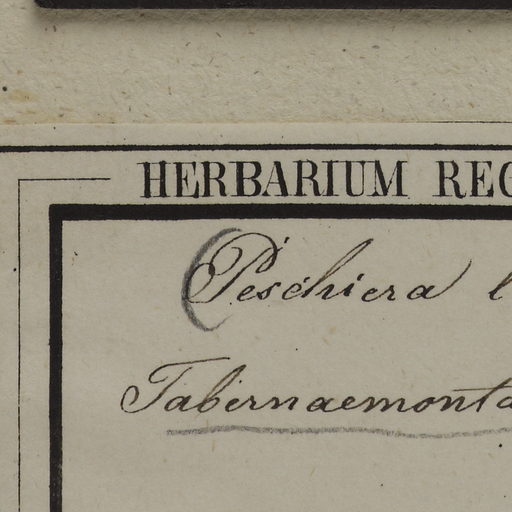 HERBARIUM REG
(Peschiera l
Tabernaemonta